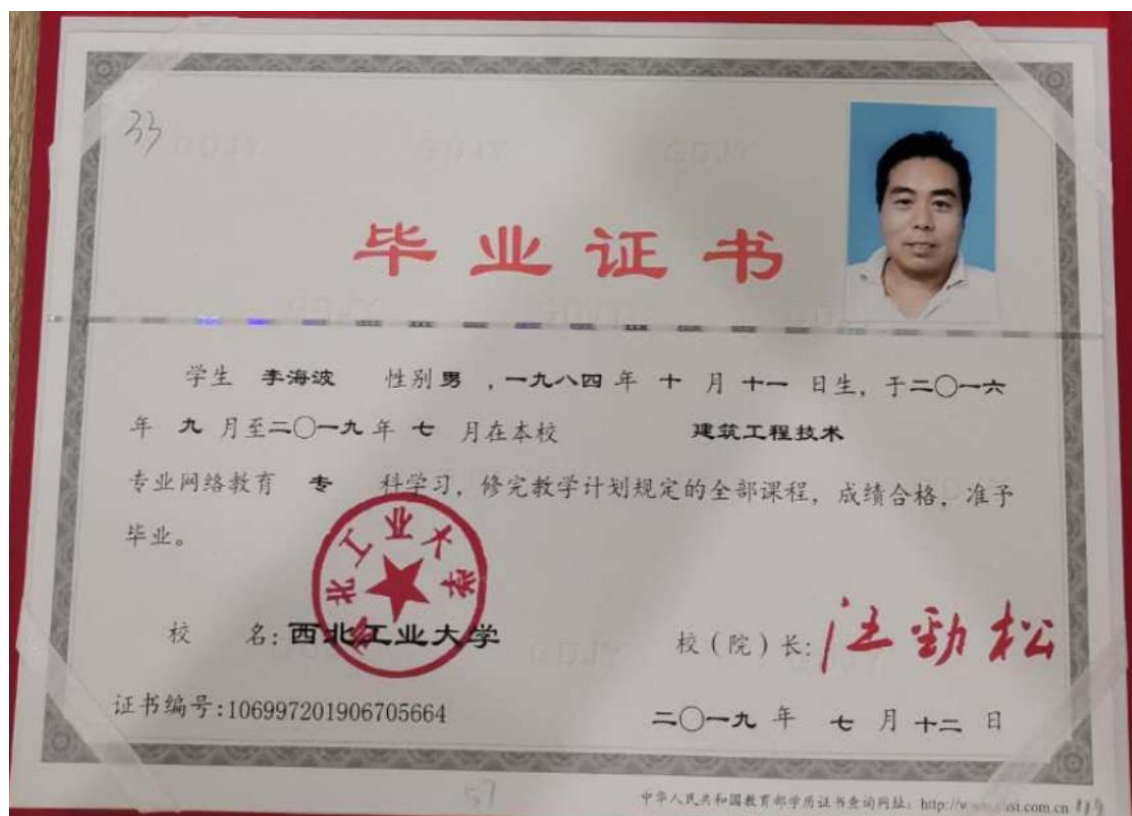 33
毕业证书
学生 李海波 性别 男 ,一九八四 年 十 月 十一 日生, 于二〇一六
年 九 月至二〇一九 年 七 月在本校 建筑工程技术
专业网络教育 专 科学习, 修完教学计划规定的全部课程, 成绩合格, 准予
毕业。
西北工业大学
校 名: 西北工业大学 校(院)长: 汪劲松
证书编号:106997201906705664 二〇一九 年 七 月 十二 日
57 中华人民共和国教育部学历证书查询网址: